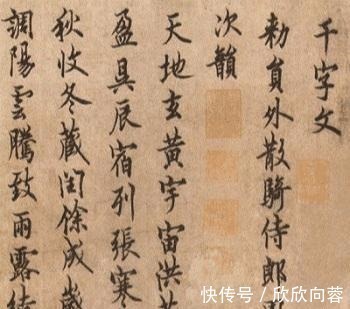 千字文
勅員外散騎侍郎
次韻
天地玄黄宇宙洪荒
盈昃辰宿列張寒
秋收冬藏閏餘成歲
調陽雲騰致雨露結
快传号 / 欣欣向蓉